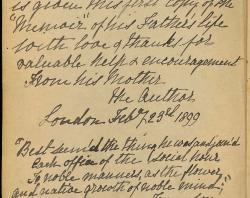 is given this first copy of the
"Memoir" of his Father's life
with love & thanks for
valuable help & encouragement
From his Mother
the Author
London Feby 23rd 1899
"Best seemed the thing he was, and join'd
Each office of the social hour
To noble manners, as the flower
And native growth of noble mind;"